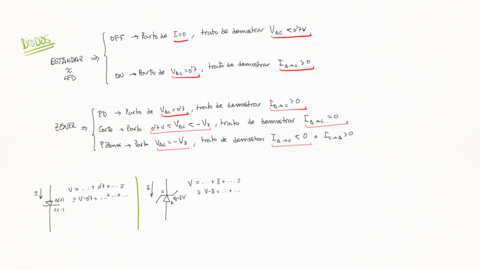 DIODOS
OFF → Parto de I=0, trato de demostrar V_AC < 0'7V
ESTÁNDAR % LED ⇒
ON → Parto de V_AC=0'7, trato de demostrar I_A→C > 0
PD → Parto de V_AC=0'7, trato de demostrar I_A→C > 0
ZENER ⇒
Corte → Parto 0'7V < V_AC < -V_Z, trato de demostrar I_A→C = 0
P Zener → Parto V_AC=-V_Z, trato de demostrar I_A→C < 0 o I_C→A > 0
I↓ V = ... + 0'7 + ... I
I = V-0'7 = ... + ...
I↓ V = ... + 3 + ... I
= V-3 = ... + ...